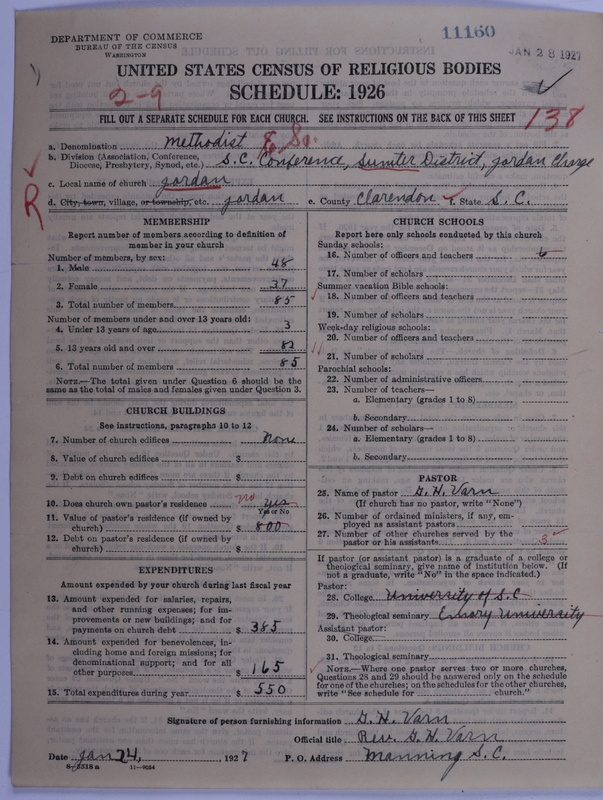 DEPARTMENT OF COMMERCE
BUREAU OF THE CENSUS
WASHINGTON
11160
JAN 28 1927
UNITED STATES CENSUS OF RELIGIOUS BODIES
SCHEDULE: 1926
2-9
138
FILL OUT A SEPARATE SCHEDULE FOR EACH CHURCH. SEE INSTRUCTIONS ON THE BACK OF THIS SHEET
a. Denomination Methodist E. So.
b. Division (Association, Conference, Diocese, Presbytery, Synod, etc.) S.C. Conference, Sumter District, Jordan Charge
c. Local name of church Jordan
R
d. City, town, village, or township, etc. Jordan e. County Clarendon f. State S. C.
MEMBERSHIP
Report number of members according to definition of
member in your church
Number of members, by sex:
1. Male 48
2. Female 37
3. Total number of members 85
Number of members under and over 13 years old:
4. Under 13 years of age 3
5. 13 years old and over 82
6. Total number of members 85
NOTE.—The total given under Question 6 should be
same as the total of males and females given under Question 3.
CHURCH BUILDINGS
See instructions, paragraphs 10 to 12
7. Number of church edifices None
8. Value of church edifices $
9. Debt on church edifices $
10. Does church own pastor's residence no Yes
Yes or No
11. Value of pastor's residence (if owned by
church) $ 800
12. Debt on pastor's residence (if owned by
church) $
EXPENDITURES
Amount expended by your church during last fiscal year
13. Amount expended for salaries, repairs,
and other running expenses; for im-
provements or new buildings; and for
payments on church debt $ 385
14. Amount expended for benevolences, in-
cluding home and foreign missions; for
denominational support; and for all
other purposes $ 165
15. Total expenditures during year $ 550
CHURCH SCHOOLS
Report here only schools conducted by this church
Sunday schools:
16. Number of officers and teachers 6
17. Number of scholars
Summer vacation Bible schools:
18. Number of officers and teachers
19. Number of scholars
Week-day religious schools:
20. Number of officers and teachers
21. Number of scholars
Parochial schools:
22. Number of administrative officers
23. Number of teachers—
a. Elementary (grades 1 to 8)
b. Secondary
24. Number of scholars—
a. Elementary (grades 1 to 8)
b. Secondary
PASTOR
25. Name of pastor G. H. Varn
(If church has no pastor, write "None")
26. Number of ordained ministers, if any, em-
ployed as assistant pastors
27. Number of other churches served by the
pastor or his assistants 3
If pastor (or assistant pastor) is a graduate of a college or
theological seminary, give name of institution below. (If
not a graduate, write "No" in the space indicated.)
Pastor:
28. College University of S.C
29. Theological seminary Emory University
Assistant pastor:
30. College
31. Theological seminary
NOTE.—Where one pastor serves two or more churches,
Questions 28 and 29 should be answered only on the schedule
for one of the churches; on the schedules for the other churches,
write "See schedule for church."
Signature of person furnishing information G. H. Varn
Official title Rev. G. H. Varn
Date Jan 24, 1927 P. O. Address Manning S.C.
8-5518a 11-9034